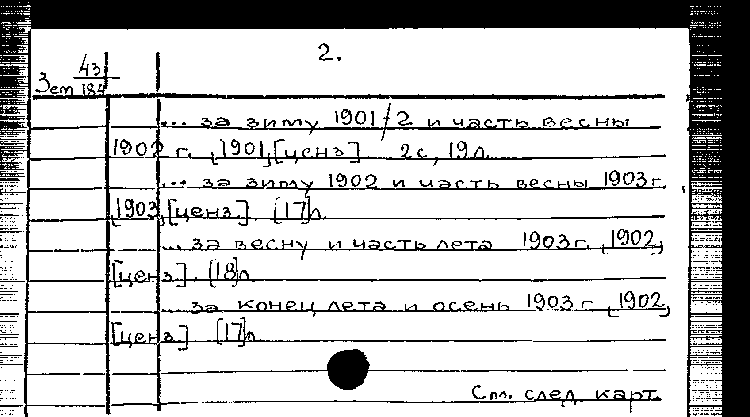 2.
43
Зем 184
... за зиму 1901/2 и часть весны
1902 г. 1901, [ценз.] 2 с, 19 л.
... за зиму 1902 и часть весны 1903 г.
1903, [ценз.] [17] л.
... за весну и часть лета 1903 г. 1902,
[ценз.]. [18] л
... за конец лета и осень 1903 г. 1902,
[ценз.] [17] л
См. след. карт.